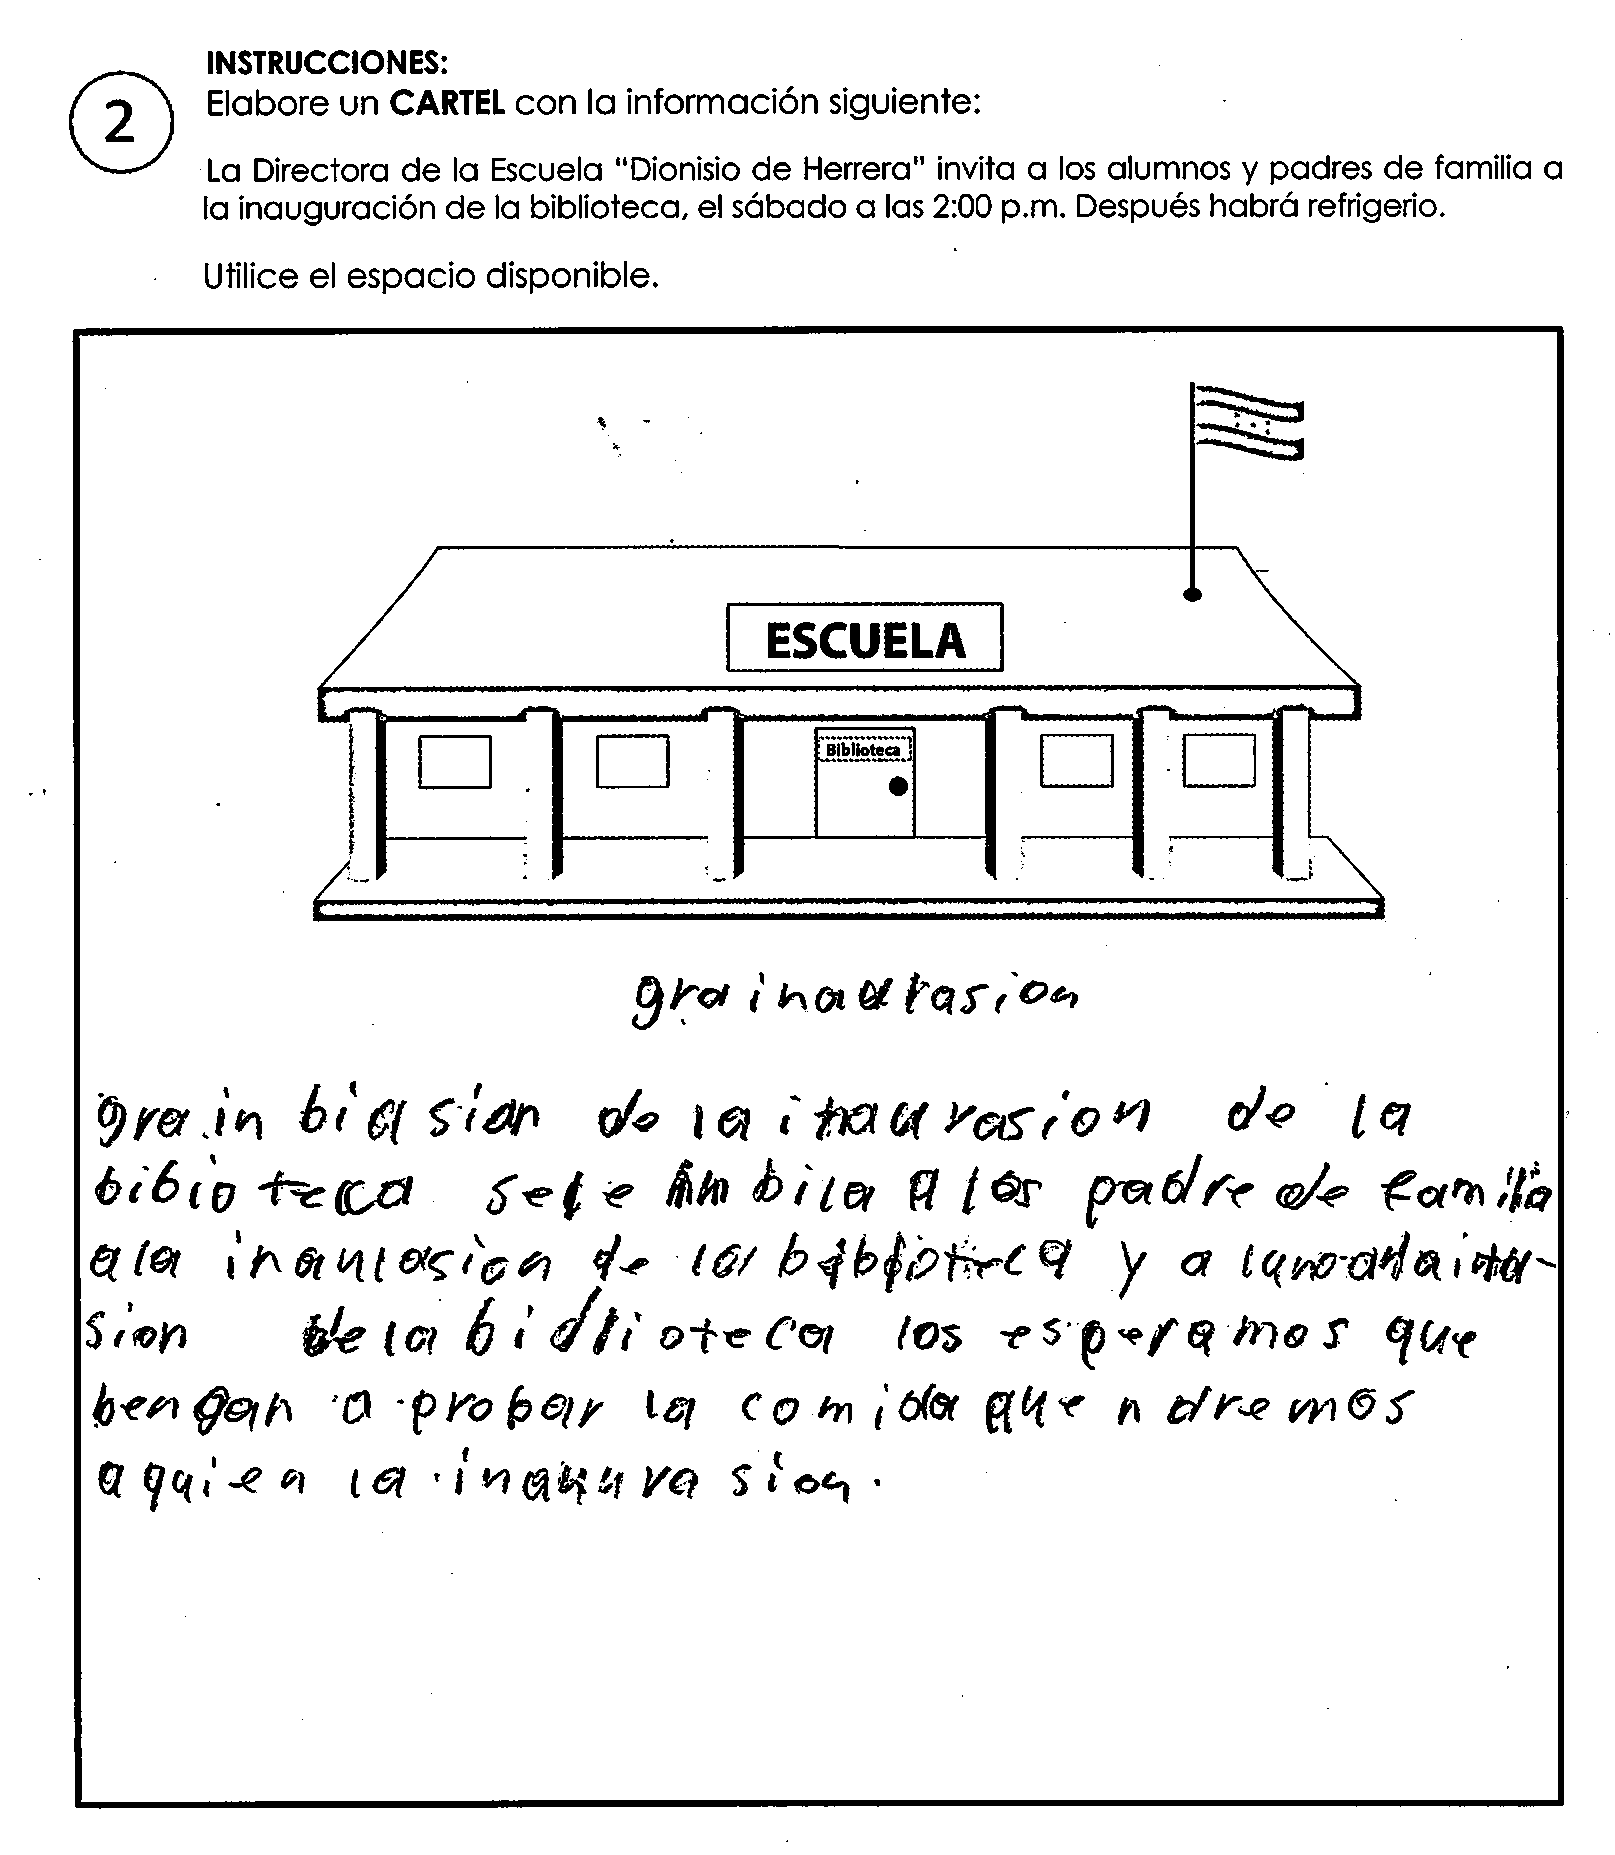 INSTRUCCIONES:
2
Elabore un CARTEL con la información siguiente:
La Directora de la Escuela "Dionisio de Herrera" invita a los alumnos y padres de familia a
la inauguración de la biblioteca, el sábado a las 2:00 p.m. Después habrá refrigerio.
Utilice el espacio disponible.
ESCUELA
Biblioteca
gra inaurasion
gra in biasion de la inaurasion de la
bibioteca se le imbita a los padre de familia
a la inaurasion de la biblioteca y a
sion de la bidlioteca los esperamos que
bengan a probar la comida que ndremos
aqui en la inaurasion.